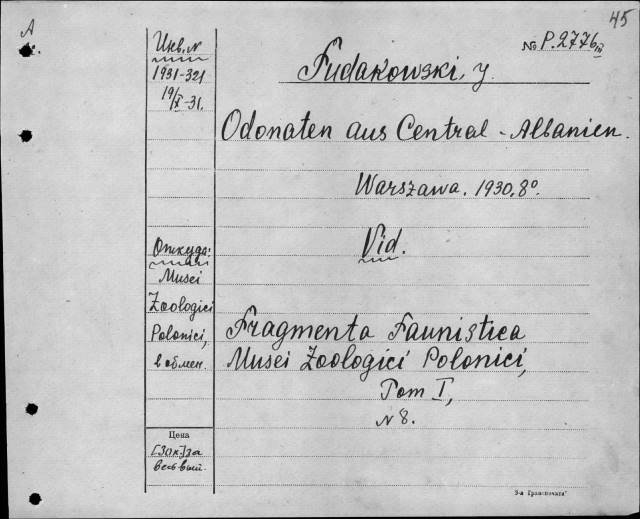 45
A
Инв. N
1931-321
19/X-31.
No P.2776 III
Fudakowski, J.
Odonaten aus Central-Albanien.
Warszawa. 1930. 8°.
Vid.
Откуда:
Musei
Zoologici
Polonici,
в обмен.
Fragmenta Faunistica
Musei Zoologici Polonici,
Tom I,
N 8.
Цена
[30к.] за
весь вып.
3-я Гранпечать